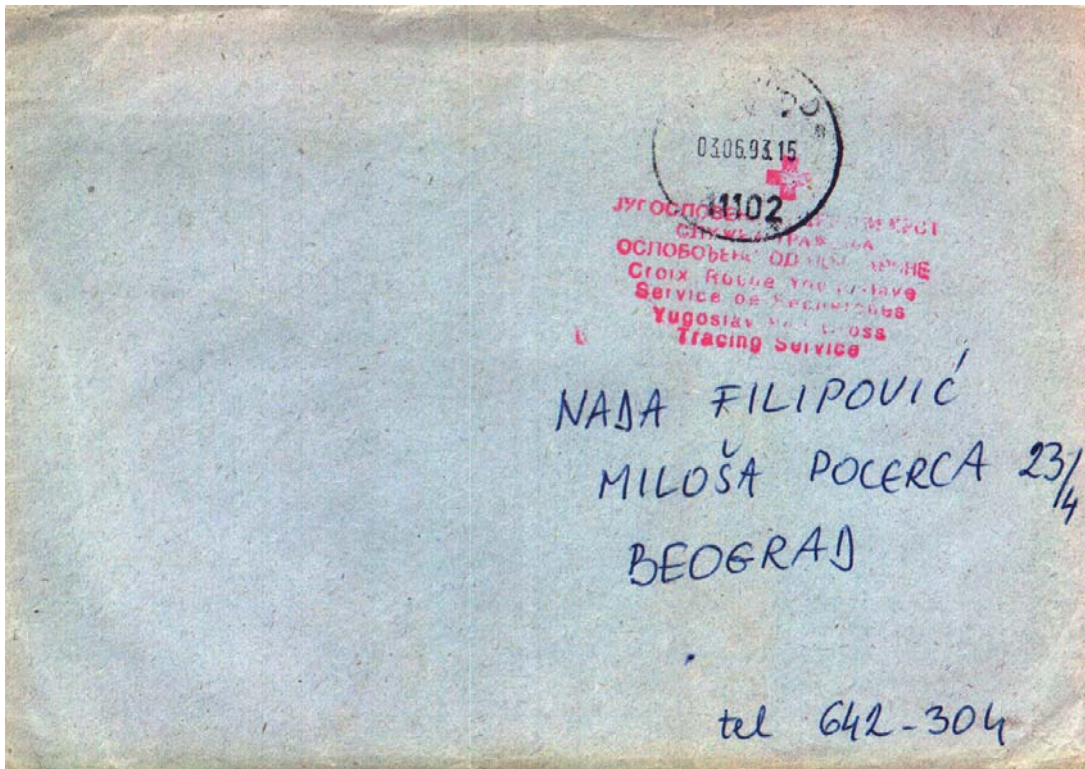 03.06.93.15
11102
ЈУГОСЛОВЕН КРСТ
СЛУЖБА ТРАЖЕЊА
ОСЛОБОЂЕНО ОД
Croix Rouge Yougoslave
Service de Recherches
Yugoslav Red Cross
Tracing Service
NADA FILIPOVIĆ
MILOŠA POCERCA 23/4
BEOGRAD
tel 642-304